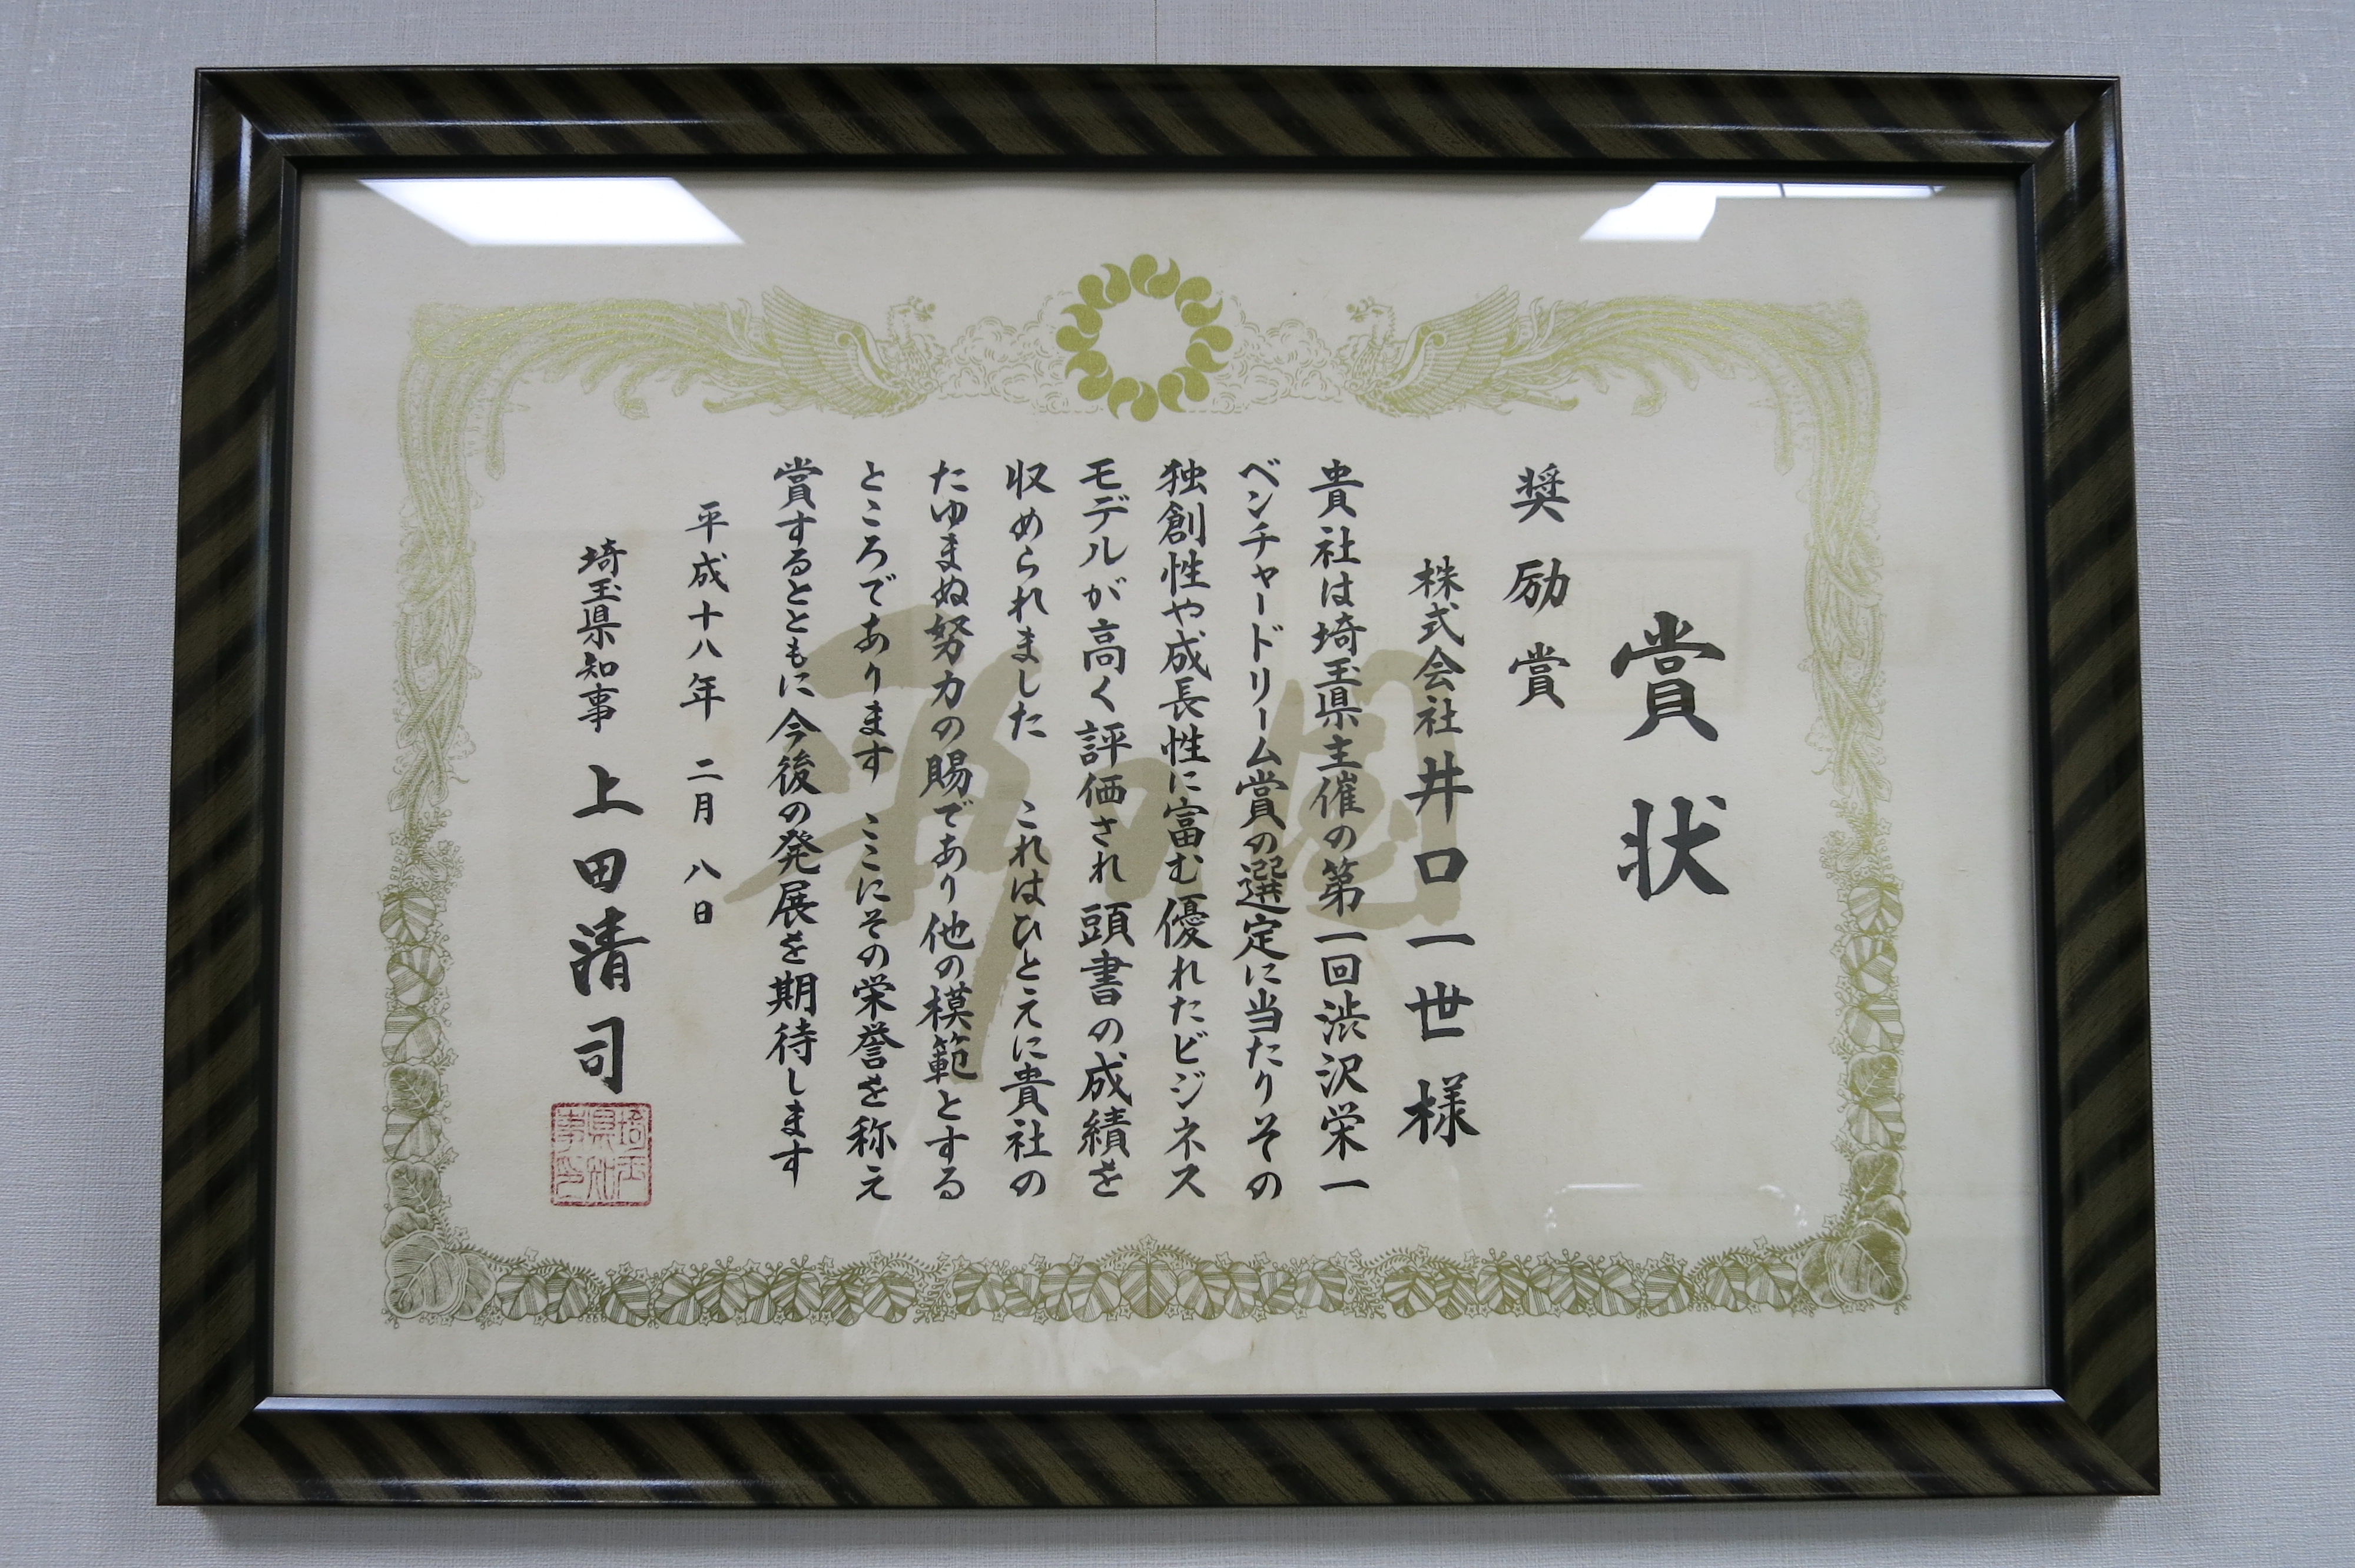 賞状
奨励賞
株式会社井口一世様
貴社は埼玉県主催の第一回渋沢栄一
ベンチャードリーム賞の選定に当たりその
独創性や成長性に富む優れたビジネス
モデルが高く評価され頭書の成績を
収められました これはひとえに貴社の
たゆまぬ努力の賜であり他の模範とする
ところであります ここにその栄誉を称え
賞するとともに今後の発展を期待します
平成十八年 二月 八日
埼玉県知事 上田清司